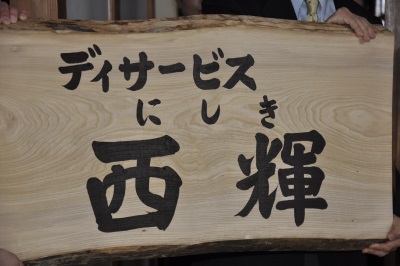 ディサービス
にしき
西輝